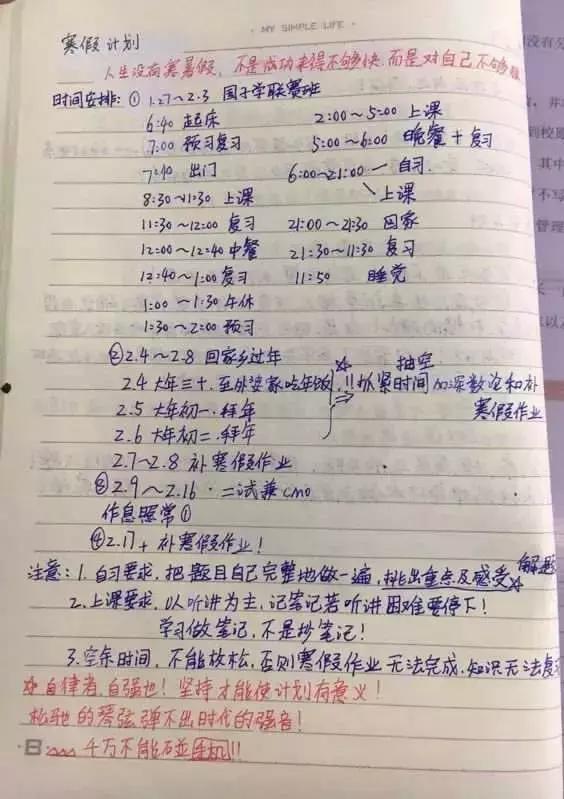 MY SIMPLE LIFE
寒假计划
人生没有寒暑假,不是成功来得不够快,而是对自己不够狠
时间安排:① 1.27~2.3 国子学联赛班
6:40 起床
7:00 预习复习
7:40 出门
8:30~11:30 上课
11:30~12:00 复习
12:00~12:40 中餐
12:40~1:00 复习
1:00~1:30 午休
1:30~2:00 预习
2:00~5:00 上课
5:00~6:00 晚餐+复习
6:00~21:00 一自习.
上课
21:00~21:30 回家
21:30~11:30 复习
11:50 睡觉
② 2.4~2.8 回家乡过年
2.4 大年三十.至外婆家吃年饭
2.5 大年初一.拜年
2.6 大年初二.拜年
2.7~2.8 补寒假作业
☆ 抽空
!!抓紧时间加深数论和补
寒假作业
③ 2.9~2.16.二试兼CMO
作息照常①
④ 2.17+ 补寒假作业!
注意:1.自习要求.把题目自己完整地做一遍,挑出重点及感受☆解题
2.上课要求.以听讲为主,记笔记若听讲困难要停下!
学习做笔记,不是抄笔记!
3.空余时间,不能放松,否则寒假作业无法完成,知识无法复
☆自律者,自强也!坚持才能使计划有意义!
松弛的琴弦弹不出时代的强音!
千万不能碰手机!!
没有分
其中
不写
管理